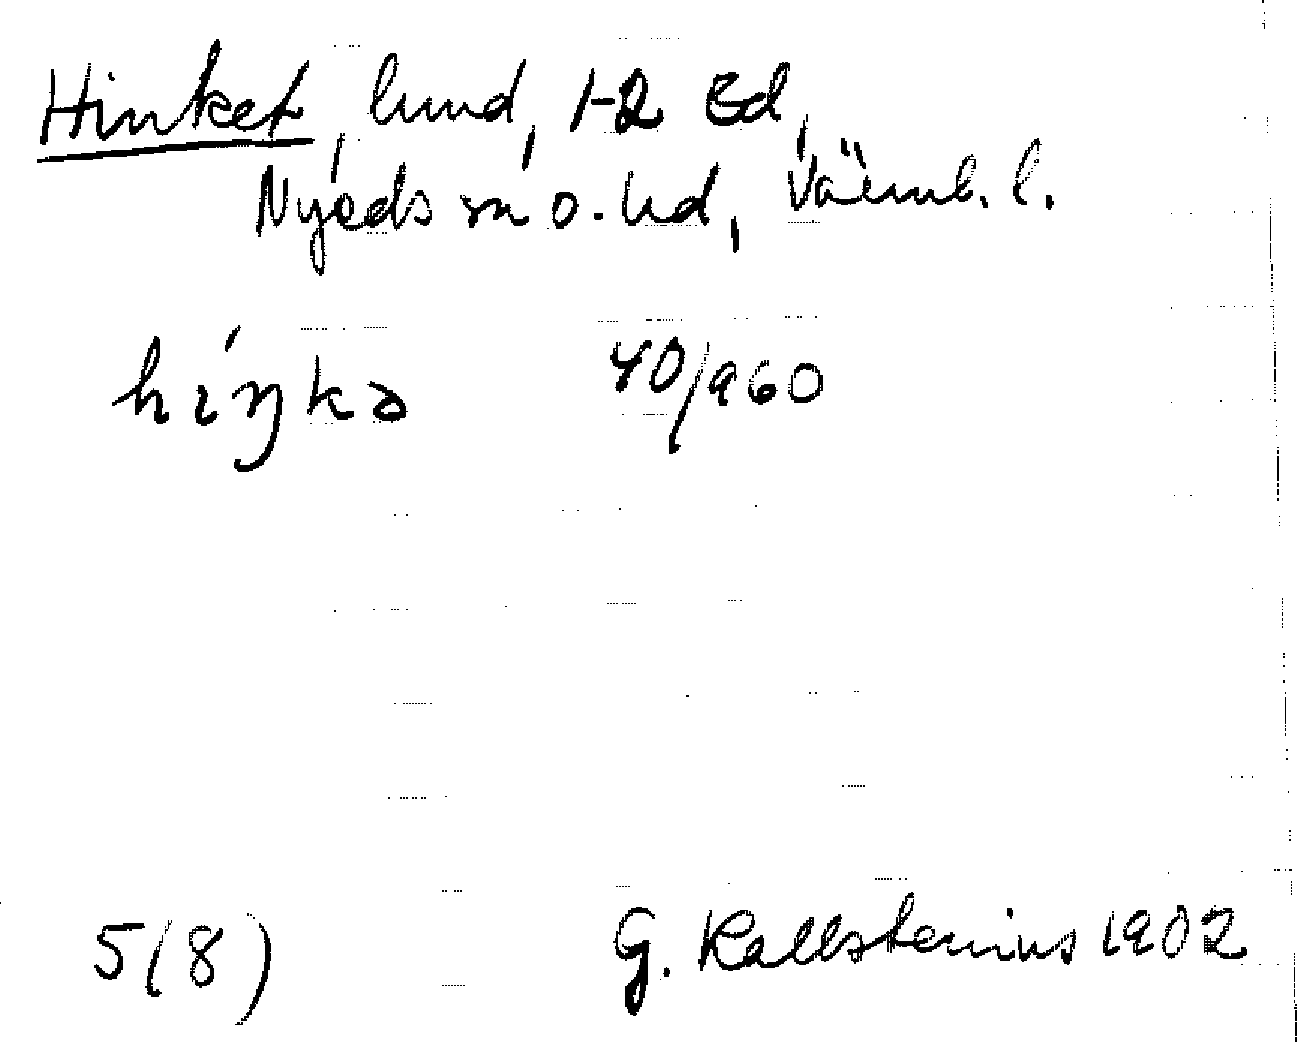 Hinket, lund, 1-2 Ed,
Nyeds sn o. hd, Värml. l.
híŋkə 40/960
5(8) G. Kallstenius 1902